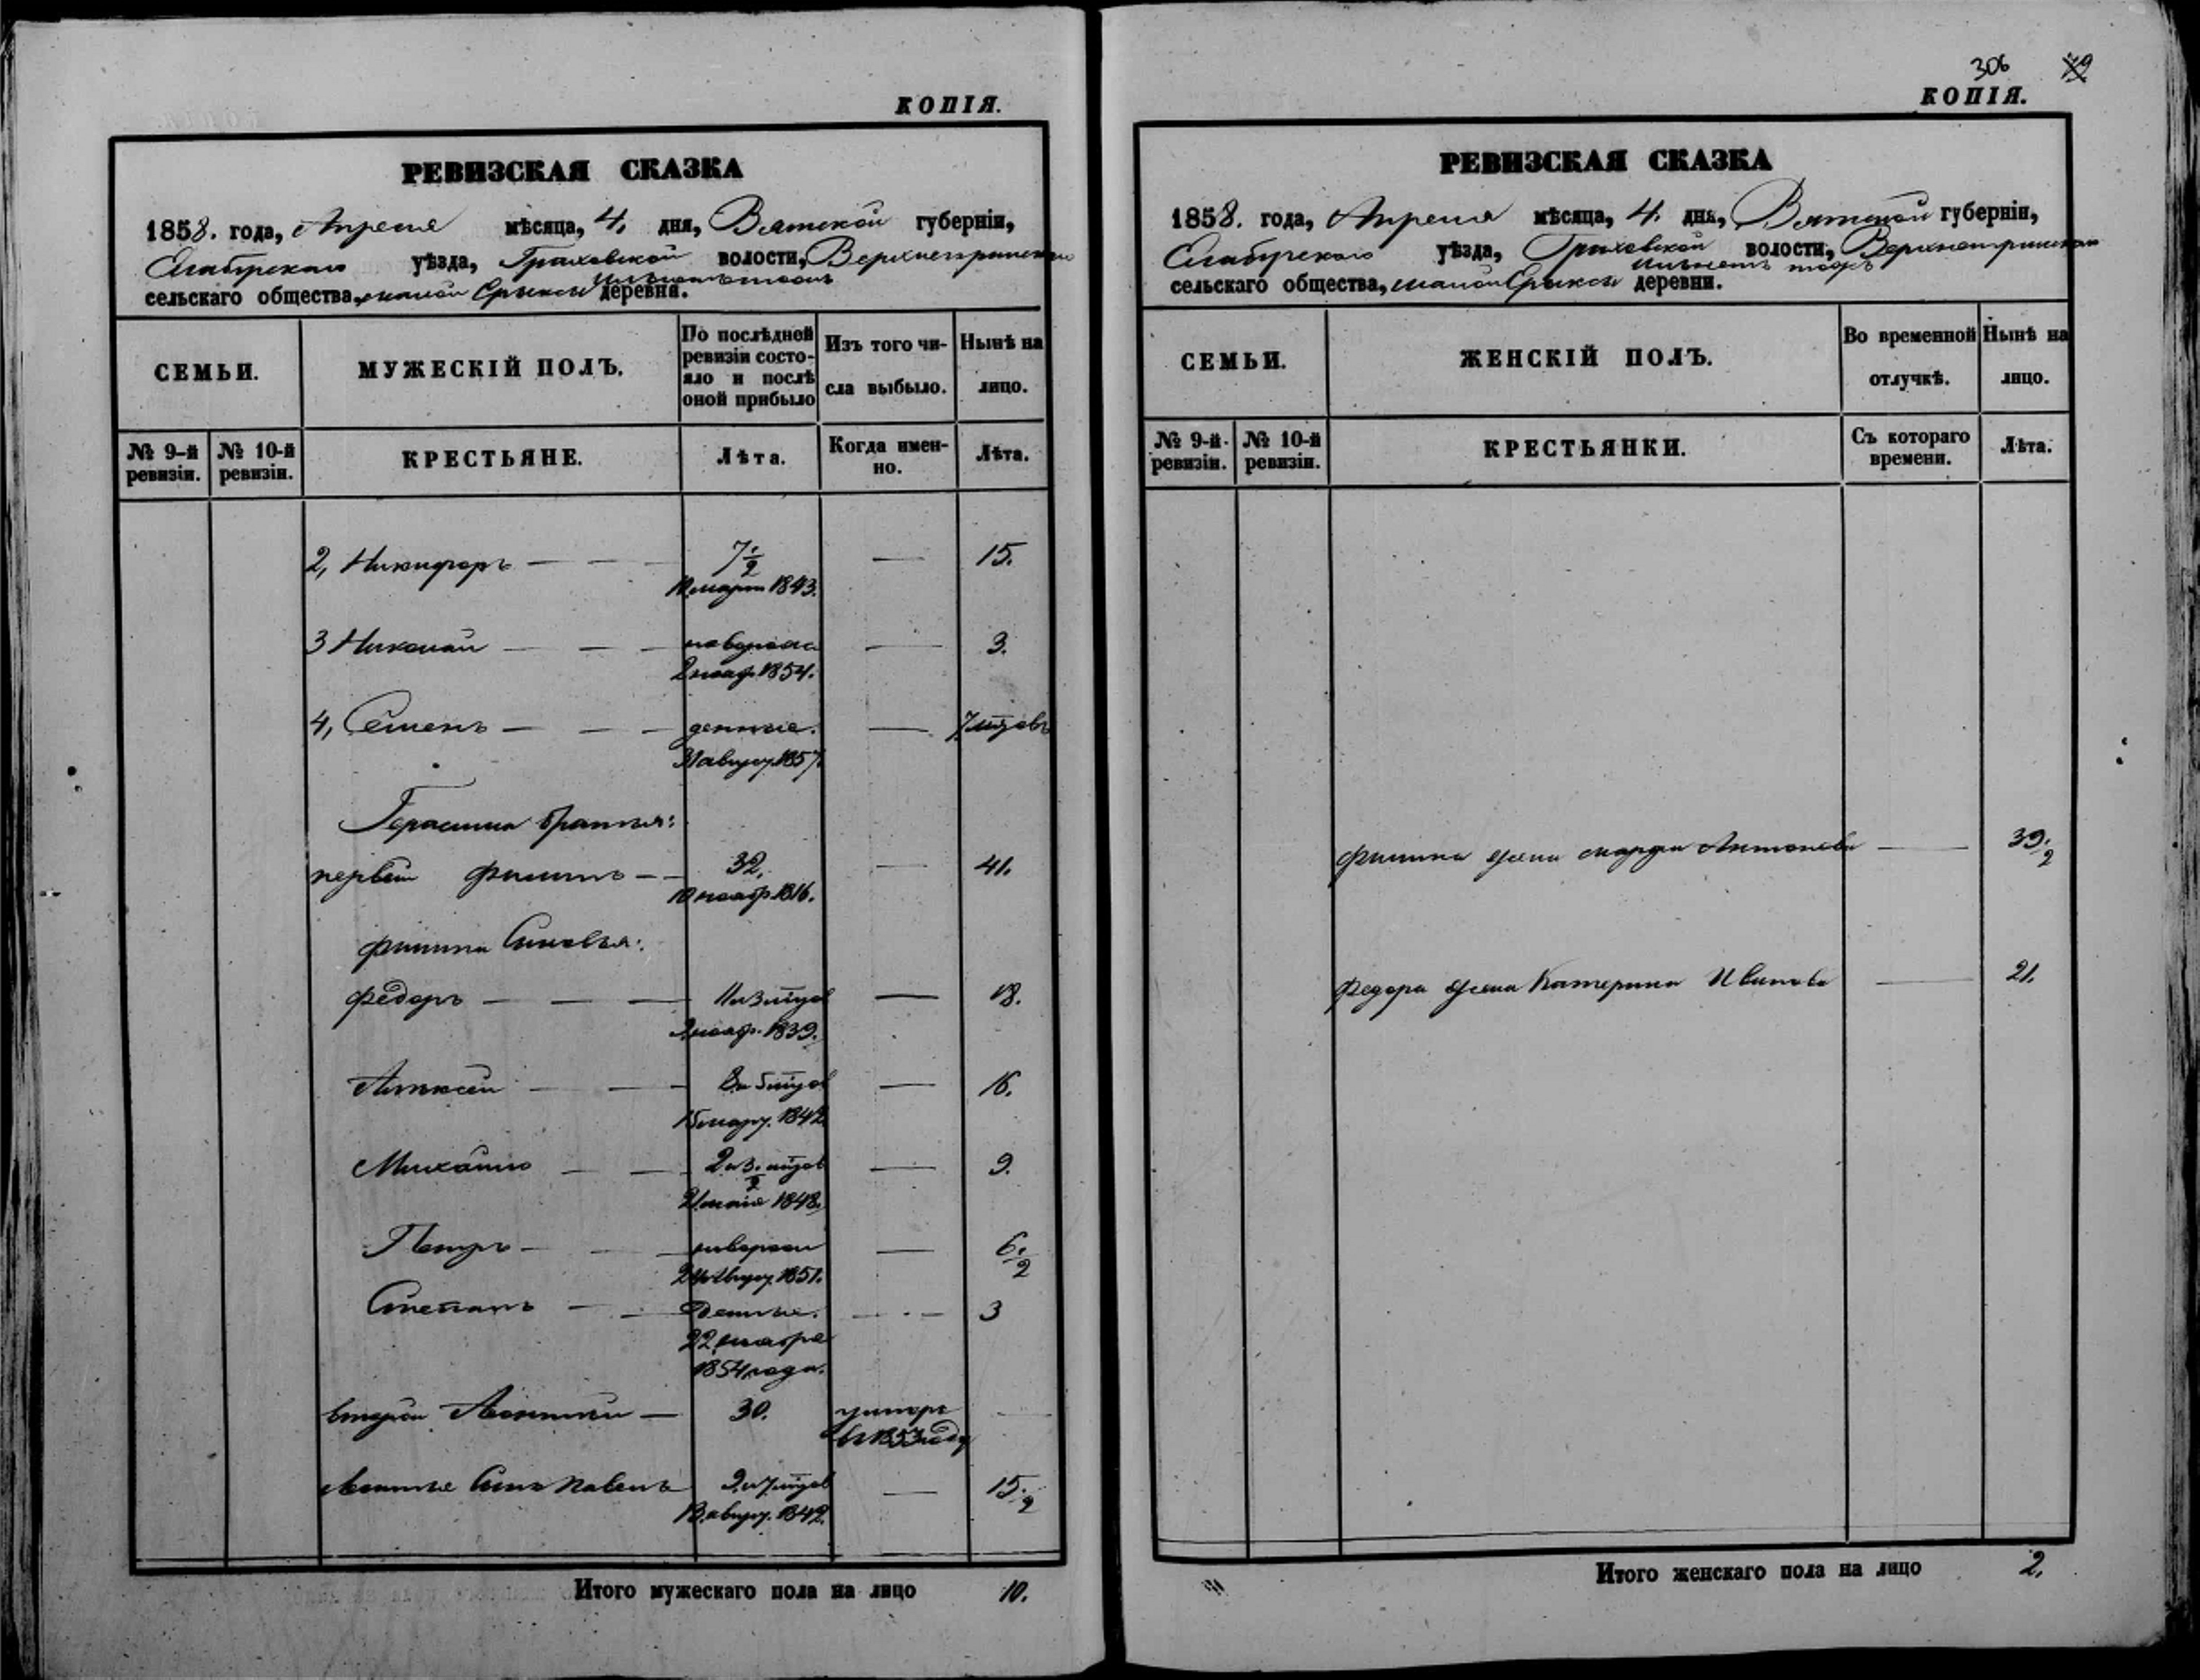 КОПІЯ.
РЕВИЗСКАЯ СКАЗКА
1858. года, Апреля мѣсяца, 4. дня, Вятской губерніи,
Елабугскаго уѣзда, Граховской волости,
сельскаго общества, малой деревня.
СЕМЬИ.
МУЖЕСКІЙ ПОЛЪ.
По послѣдней ревизіи состояло и послѣ оной прибыло
Изъ того числа выбыло.
Нынѣ на лицо.
№ 9-й ревизіи.
№ 10-й ревизіи.
КРЕСТЬЯНЕ.
Лѣта.
Когда именно.
Лѣта.
2, Никифоръ — — — 7 1/2 — 15.
марта 1843.
3 Николай — — — новорож — 3.
2 нояб. 1854.
4, Семенъ — — — денные. — 7 мцовъ
31 август. 1857.
Герасима братья:
первый Филипъ — — 32. — 41.
10 ноябр. 1816.
Филипа Сыновья:
Федоръ — — — 11 и 3 мцов — 18.
нояб. 1839.
Алексей — — — 8 и 5 мцов — 16.
15 март. 1842
Михайло — — 2 и 3 1/2 мцов — 9.
21 1848.
Петръ — — новорож — 6. 1/2
24 август. 1851.
Степанъ — — денные. — · — 3
22
1854 года.
второй — 30. умеръ —
въ 1853 году
Сынъ Павелъ 9 и 7 мцов — 15. 1/2
13 август. 1842.
Итого мужескаго пола на лицо 10.
306
КОПІЯ.
РЕВИЗСКАЯ СКАЗКА
1858. года, Апреля мѣсяца, 4. дня, Вятской губерніи,
Елабугскаго уѣзда, Граховской волости,
сельскаго общества, малой деревни.
СЕМЬИ.
ЖЕНСКІЙ ПОЛЪ.
Во временной отлучкѣ.
Нынѣ на лицо.
№ 9-й ревизіи.
№ 10-й ревизіи.
КРЕСТЬЯНКИ.
Съ котораго времени.
Лѣта.
Филипа жена Марфа Антонова — 39. 1/2
Федора жена Катерина Иванова — 21.
Итого женскаго пола на лицо 2.